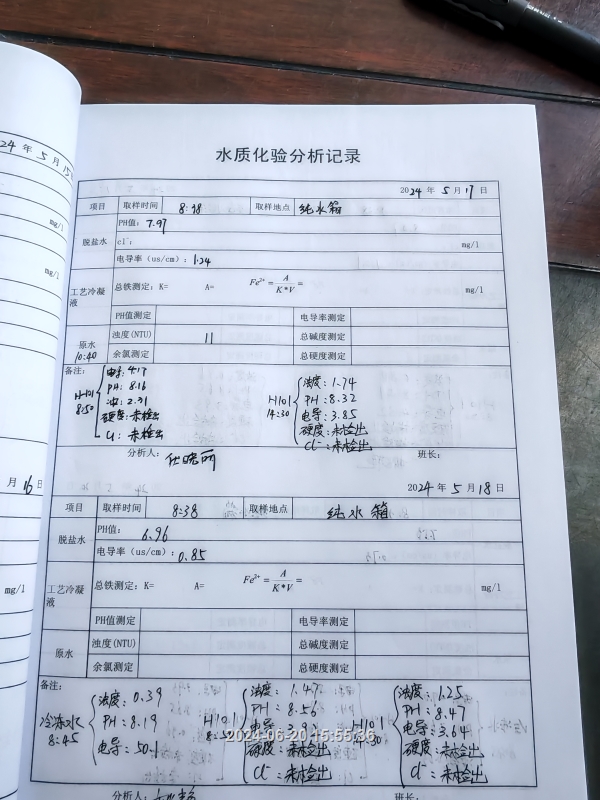 24 年 5 月 15
mg/l
mg/l
月 16 日
mg/l
水质化验分析记录
2024 年 5 月 17 日
项目 取样时间 8:48 取样地点 纯水箱
脱盐水 PH值: 7.97
cl⁻: mg/l
电导率（us/cm）: 1.24
工艺冷凝液 总铁测定: K= A= Fe²⁺=A/K*V= mg/l
原水 10:40 PH值测定 电导率测定
浊度(NTU) 11 总碱度测定
余氯测定 总硬度测定
备注:
H101 8:50
电导: 4.17
PH: 8.16
浊: 2.31
硬度: 未检出
Cl: 未检出
H101 14:30
浊度: 1.74
PH: 8.32
电导: 3.85
硬度: 未检出
Cl⁻: 未检出
分析人: 班长:
2024 年 5 月 18 日
项目 取样时间 8:38 取样地点 纯水箱
脱盐水 PH值: 6.96
电导率（us/cm）: 0.85
工艺冷凝液 总铁测定: K= A= Fe²⁺=A/K*V= mg/l
原水 PH值测定 电导率测定
浊度(NTU) 总碱度测定
余氯测定 总硬度测定
备注:
冷冻水 8:45
浊度: 0.39
PH: 8.19
电导: 50.1
H101
浊度: 1.47
PH: 8.56
电导:
硬度: 未检出
Cl⁻: 未检出
H101 14:30
浊度: 1.25
PH: 8.47
电导: 3.64
硬度: 未检出
Cl⁻: 未检出
2024-06-20 15:55:36
分析人: 班长: